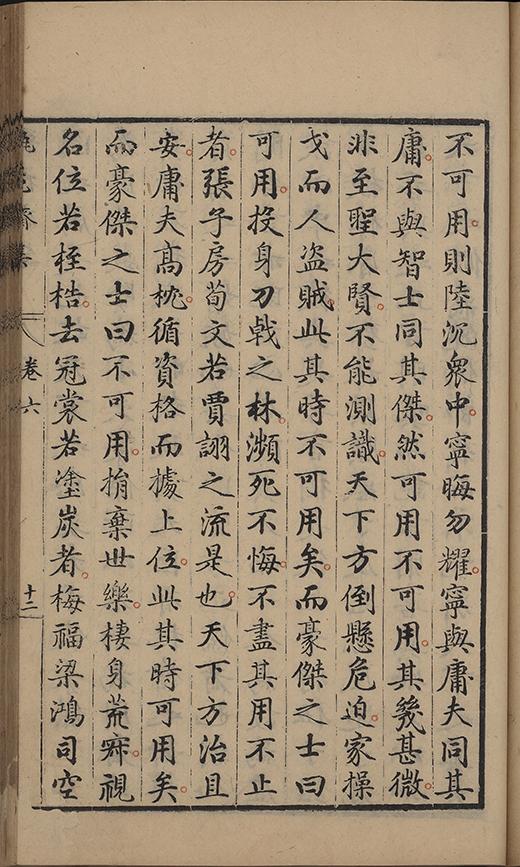 不可用則陸沉衆中寧晦勿耀寧與庸夫同其
庸不與智士同其傑然可用不可用其幾甚微
非至聖大賢不能測識天下方倒懸危迫家操
戈而人盜賊此其時不可用矣而豪傑之士曰
可用投身刀戟之林瀕死不悔不盡其用不止
者張子房荀文若賈詡之流是也天下方治且
安庸夫高枕循資格而據上位此其時可用矣
而豪傑之士曰不可用捐棄世樂棲身荒寐視
名位若桎梏去冠裳若塗炭者梅福梁鴻司空
卷六
十二